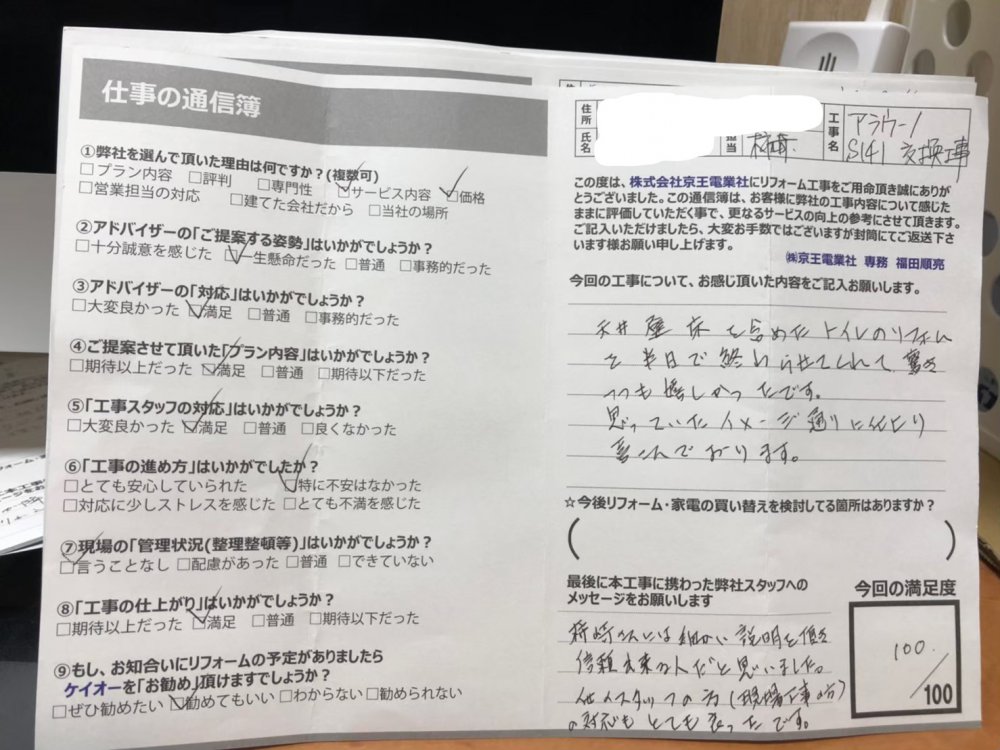 仕事の通信簿
①弊社を選んで頂いた理由は何ですか?(複数可)
□プラン内容 □評判 □専門性 ☑サービス内容 ☑価格
□営業担当の対応 □建てた会社だから □当社の場所
②アドバイザーの「ご提案する姿勢」はいかがでしょうか?
□十分誠意を感じた ☑一生懸命だった □普通 □事務的だった
③アドバイザーの「対応」はいかがでしょうか?
□大変良かった ☑満足 □普通 □事務的だった
④ご提案させて頂いた「プラン内容」はいかがでしょうか?
□期待以上だった ☑満足 □普通 □期待以下だった
⑤「工事スタッフの対応」はいかがでしょうか?
□大変良かった ☑満足 □普通 □良くなかった
⑥「工事の進め方」はいかがでしたか?
□とても安心していられた ☑特に不安はなかった
□対応に少しストレスを感じた □とても不満を感じた
⑦現場の「管理状況(整理整頓等)」はいかがでしょうか?
☑言うことなし □配慮があった □普通 □できていない
⑧「工事の仕上がり」はいかがでしょうか?
□期待以上だった ☑満足 □普通 □期待以下だった
⑨もし、お知合いにリフォームの予定がありましたら
ケイオーを「お勧め」頂けますでしょうか?
□ぜひ勧めたい ☑勧めてもいい □わからない □勧められない
住所
氏名
担当
工事名
アラウーノ
S141 交換工事
この度は、株式会社京王電業社にリフォーム工事をご用命頂き誠にありが
とうございました。この通信簿は、お客様に弊社の工事内容について感じた
ままに評価していただく事で、更なるサービスの向上の参考にさせて頂きます。
ご記入いただけましたら、大変お手数ではございますが封筒にてご返送下さ
います様お願い申し上げます。
㈱京王電業社 専務 福田順亮
今回の工事について、お感じ頂いた内容をご記入お願いします。
天井 壁 床を含めたトイレのリフォーム
を半日で終わらせてくれて驚き
つつも嬉しかったです。
思っていたイメージ通りになり
喜こんでおります。
☆今後リフォーム・家電の買い替えを検討してる箇所はありますか?
( )
最後に本工事に携わった弊社スタッフへの
メッセージをお願いします
さんには細かい説明を頂き
信頼出来る人だと思いました。
他のスタッフの方(現場工事の方)
の対応もとても良かったです。
今回の満足度
100
/100